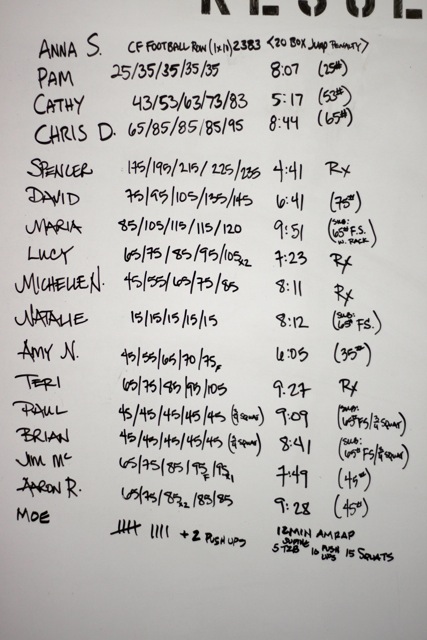 ANNA S. CF FOOTBALL ROW (1x10) 2383 <20 BOX JUMP PENALTY>
PAM 25/35/35/35/35 8:07 (25#)
CATHY 43/53/63/73/83 5:17 (53#)
CHRIS D. 65/85/85/85/95 8:44 (65#)
SPENCER 175/195/215/225/235 4:41 Rx
DAVID 75/95/105/135/145 6:41 (75#)
MARIA 85/105/115/115/120 9:51 (SUB: 65# F.S. W. RACK)
LUCY 65/75/85/95/105x2 7:23 Rx
MICHELLE N. 45/55/65/75/85 8:11 Rx
NATALIE 15/15/15/15/15 8:12 (SUB: 65# FS.)
AMY N. 45/55/65/70/75F 6:05 (35#)
TERI 65/75/85/95/105 9:27 Rx
PAUL 45/45/45/45/45 (3/4 SQUAT) 9:09 (SUB: 65# FS/3/4 SQUAT)
BRIAN 45/45/45/45/45 (3/4 SQUAT) 8:41 (SUB: 65# FS/3/4 SQUAT)
JIM MC 65/75/85/95F/95x1 7:49 (45#)
AARON R. 65/75/85x2/85/85 9:28 (45#)
MOE IIII IIII + 2 PUSH UPS 12 MIN AMRAP
5 T2B 10 PUSH UPS 15 SQUATS